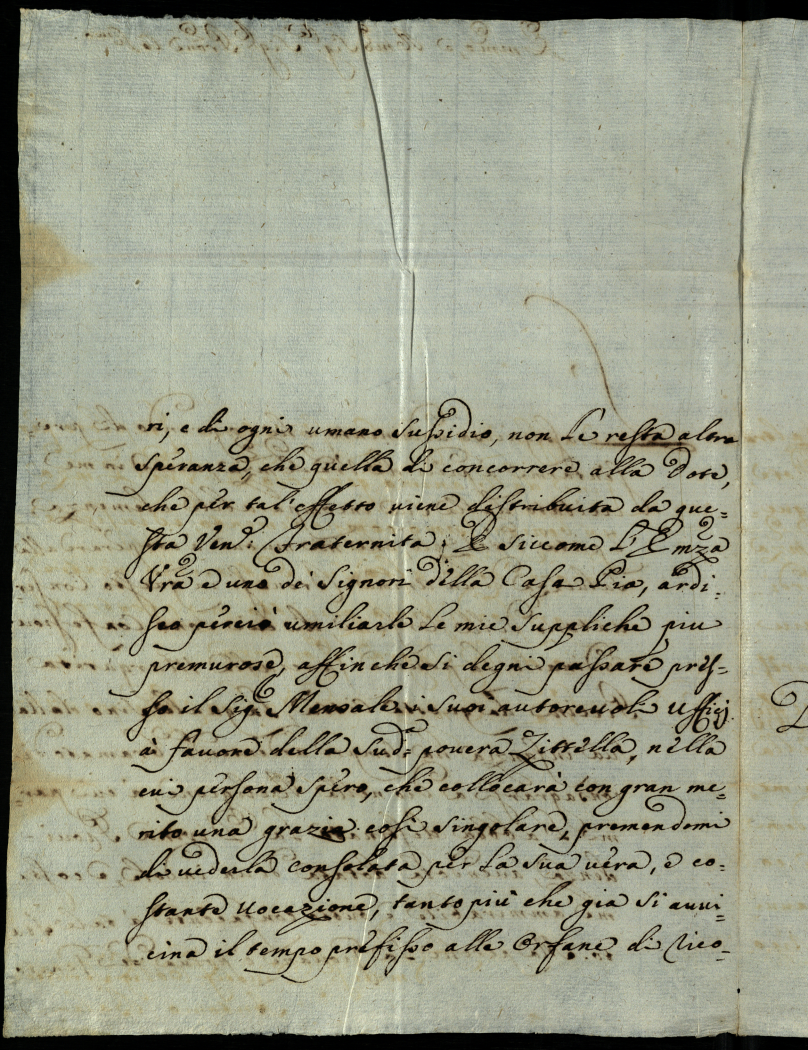 ri, e di ogni umano sussidio, non Le resta altra
speranza, che quella di concorrere alla Dote,
che per tal' effetto viene distribuita da que=
sta Ven: Fraternita: E siccome L'Emza
Vra è uno de' Signori della Casa Pia, ardi=
sco perciò umiliarle Le mie suppliche più
premurose, affinche si degni passare pres=
so il Sig. Mensale i suoi autorevoli Ufficj
à favore della Sud. povera Zittella, nella
cui persona spero, che collocarà con gran me=
rito una grazia così singolare, premendomi
di vederla consolata per La sua vera, e co=
stante vocazione, tanto più che già si avvi=
cina il tempo prefisso alle Orfane di rico=